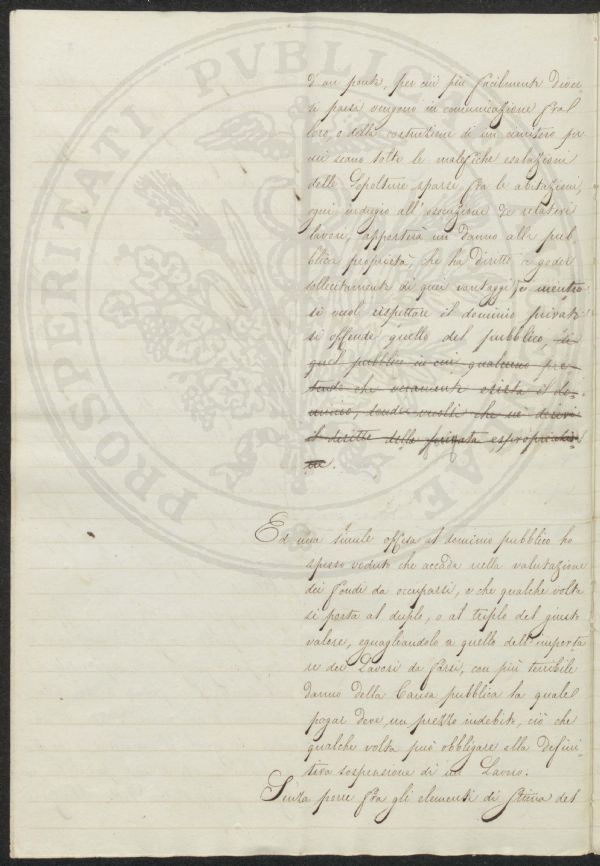 d'un ponte, per cui più facilmente diver
si paesi vengono in comunicazione fra
loro, o della costruzione di un cimitero per
cui siano tolte le malefiche esalazioni
delle Sepolture sparse fra le abitazioni,
ogni indugio all'esecuzione de' relativi
lavori, apporterà un danno alla pub
blica proprietà, che ha diritto a goder
sollecitamente di quei vantaggi, e mentre
si vuol rispettare il dominio privato
si offende quello del pubblico, di
quel pubblico in cui qualcuno pre-
tende che veramente esista il do-
minio, laonde vuolsi che ne derivi
il diritto della forzata espropriazio
ne.
Ed una simile offesa al dominio pubblico ho
spesso veduto che accada nella valutazione
dei fondi da occuparsi, e che qualche volta
si porta al duplo, o al triplo del giusto
valore, eguagliandolo a quello dell'importa
re dei Lavori da farsi, con più terribile
danno della Causa pubblica la quale
pagar deve, un prezzo indebito, ciò che
qualche volta può obbligare alla defini-
tiva sospensione di un Lavoro.
Senza porre fra gli elementi di stima del
PROSPERITATI PVBLICAE